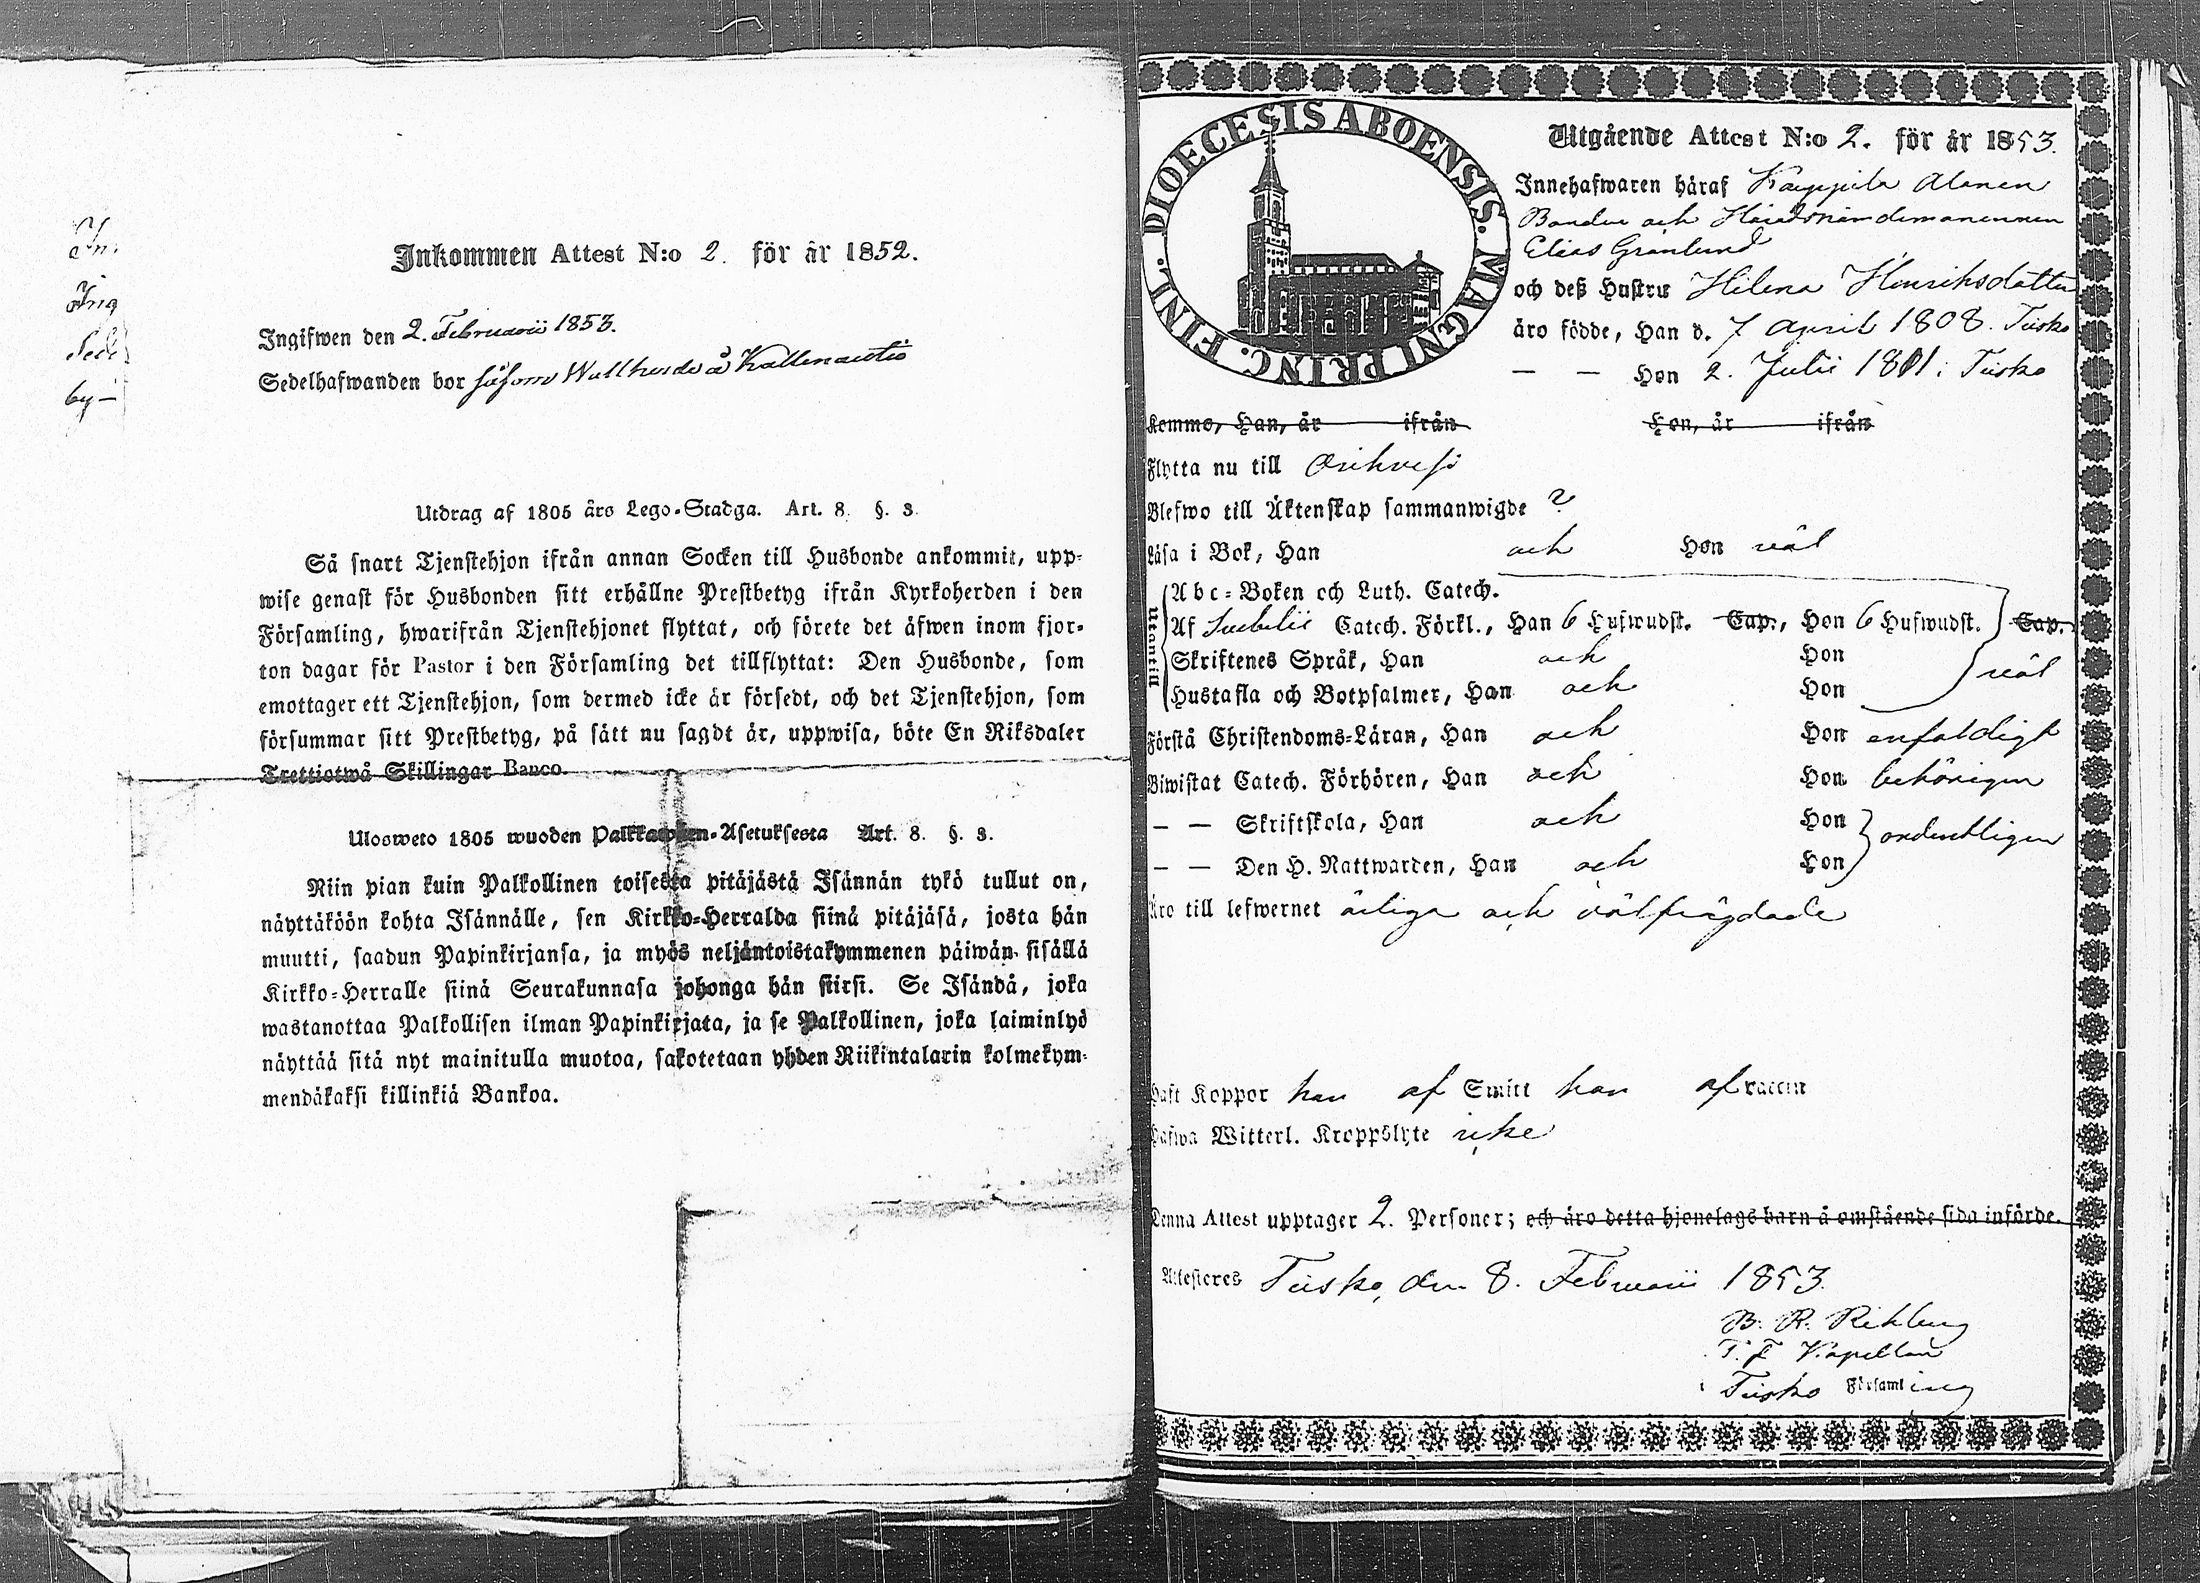 Inkommen Attest N:o 2. för år 1852.
Ingifwen den 2. Februarii 1853.
Sedelhafwanden bor såsom Wallherde å
by
Utdrag af 1805 års Lego-Stadga. Art. 8. §. 3.
Så snart Tjenstehjon ifrån annan Socken till Husbonde ankommit, upp-
wise genast för Husbonden sitt erhållne Prestbetyg ifrån Kyrkoherden i den
Församling, hwarifrån Tjenstehjonet flyttat, och förete det äfwen inom fjor-
ton dagar för Pastor i den Församling det tillflyttat: Den Husbonde, som
emottager ett Tjenstehjon, som dermed icke är försedt, och det Tjenstehjon, som
försummar sitt Prestbetyg, på sätt nu sagdt är, uppwisa, böte En Riksdaler
Trettiotwå Skillingar Banco.
Ulosweto 1805 wuoden Palkkawäen-Asetuksesta Art. 8. §. 3.
Niin pian kuin Palkollinen toisesta pitäjästä Isännän tykö tullut on,
näyttäköön kohta Isännälle, sen Kirkko-Herralda siinä pitäjäsä, josta hän
muutti, saadun Papinkirjansa, ja myös neljäntoistakymmenen päiwän sisällä
Kirkko-Herralle siinä Seurakunnasa johonga hän siirsi. Se Isändä, joka
wastanottaa Palkollisen ilman Papinkirjata, ja se Palkollinen, joka laiminlyö
näyttää sitä nyt mainitulla muotoa, sakotetaan yhden Riikintalarin kolmekym-
mendäkaksi killinkiä Bankoa.
DIOECESIS ABOENSIS. MAGNI PRINC. FINL.
Utgående Attest N:o 2. för år 1853.
Innehafwaren häraf Kauppila Alanen
Bonden och Häradsnämndemannen
Elias Grönlund
och deß Hustru Helena Henriksdotter
äro födde, Han d. 7 April 1808. Tusko
— — Hon 2. Julii 1801 i Tusko
Komme, Han, år ifrån Hon, år ifrån
Flytta nu till Orihvesi
Blefwo till Äktenskap sammanwigde ?
Läsa i Bok, Han och Hon wäl
Utantill
Abc-Boken och Luth. Catech.
Af Svebilii Catech. Förkl., Han 6 Hufwudst. Cap., Hon 6 Hufwudst. Cap.
Skriftenes Språk, Han och Hon
wäl
Hustafla och Botpsalmer, Han och Hon
Förstå Christendoms-Läran, Han och Hon enfaldigt
Biwistat Catech. Förhören, Han och Hon behörigen
— — Skriftskola, Han och Hon
ordentligen
— — Den H. Nattwarden, Han och Hon
Äro till lefwernet ärliga och wälfrägdade
Haft Koppor han af Smitt hon af vaccin
Hafwa Witterl. Kroppslyte icke
Denna Attest upptager 2. Personer; och äro detta hjonelags barn å omstående sida införde.
Attesteres Tusko, den 8. Februarii 1853.
B. R.
T. F. Kapellan
i Tusko Församling